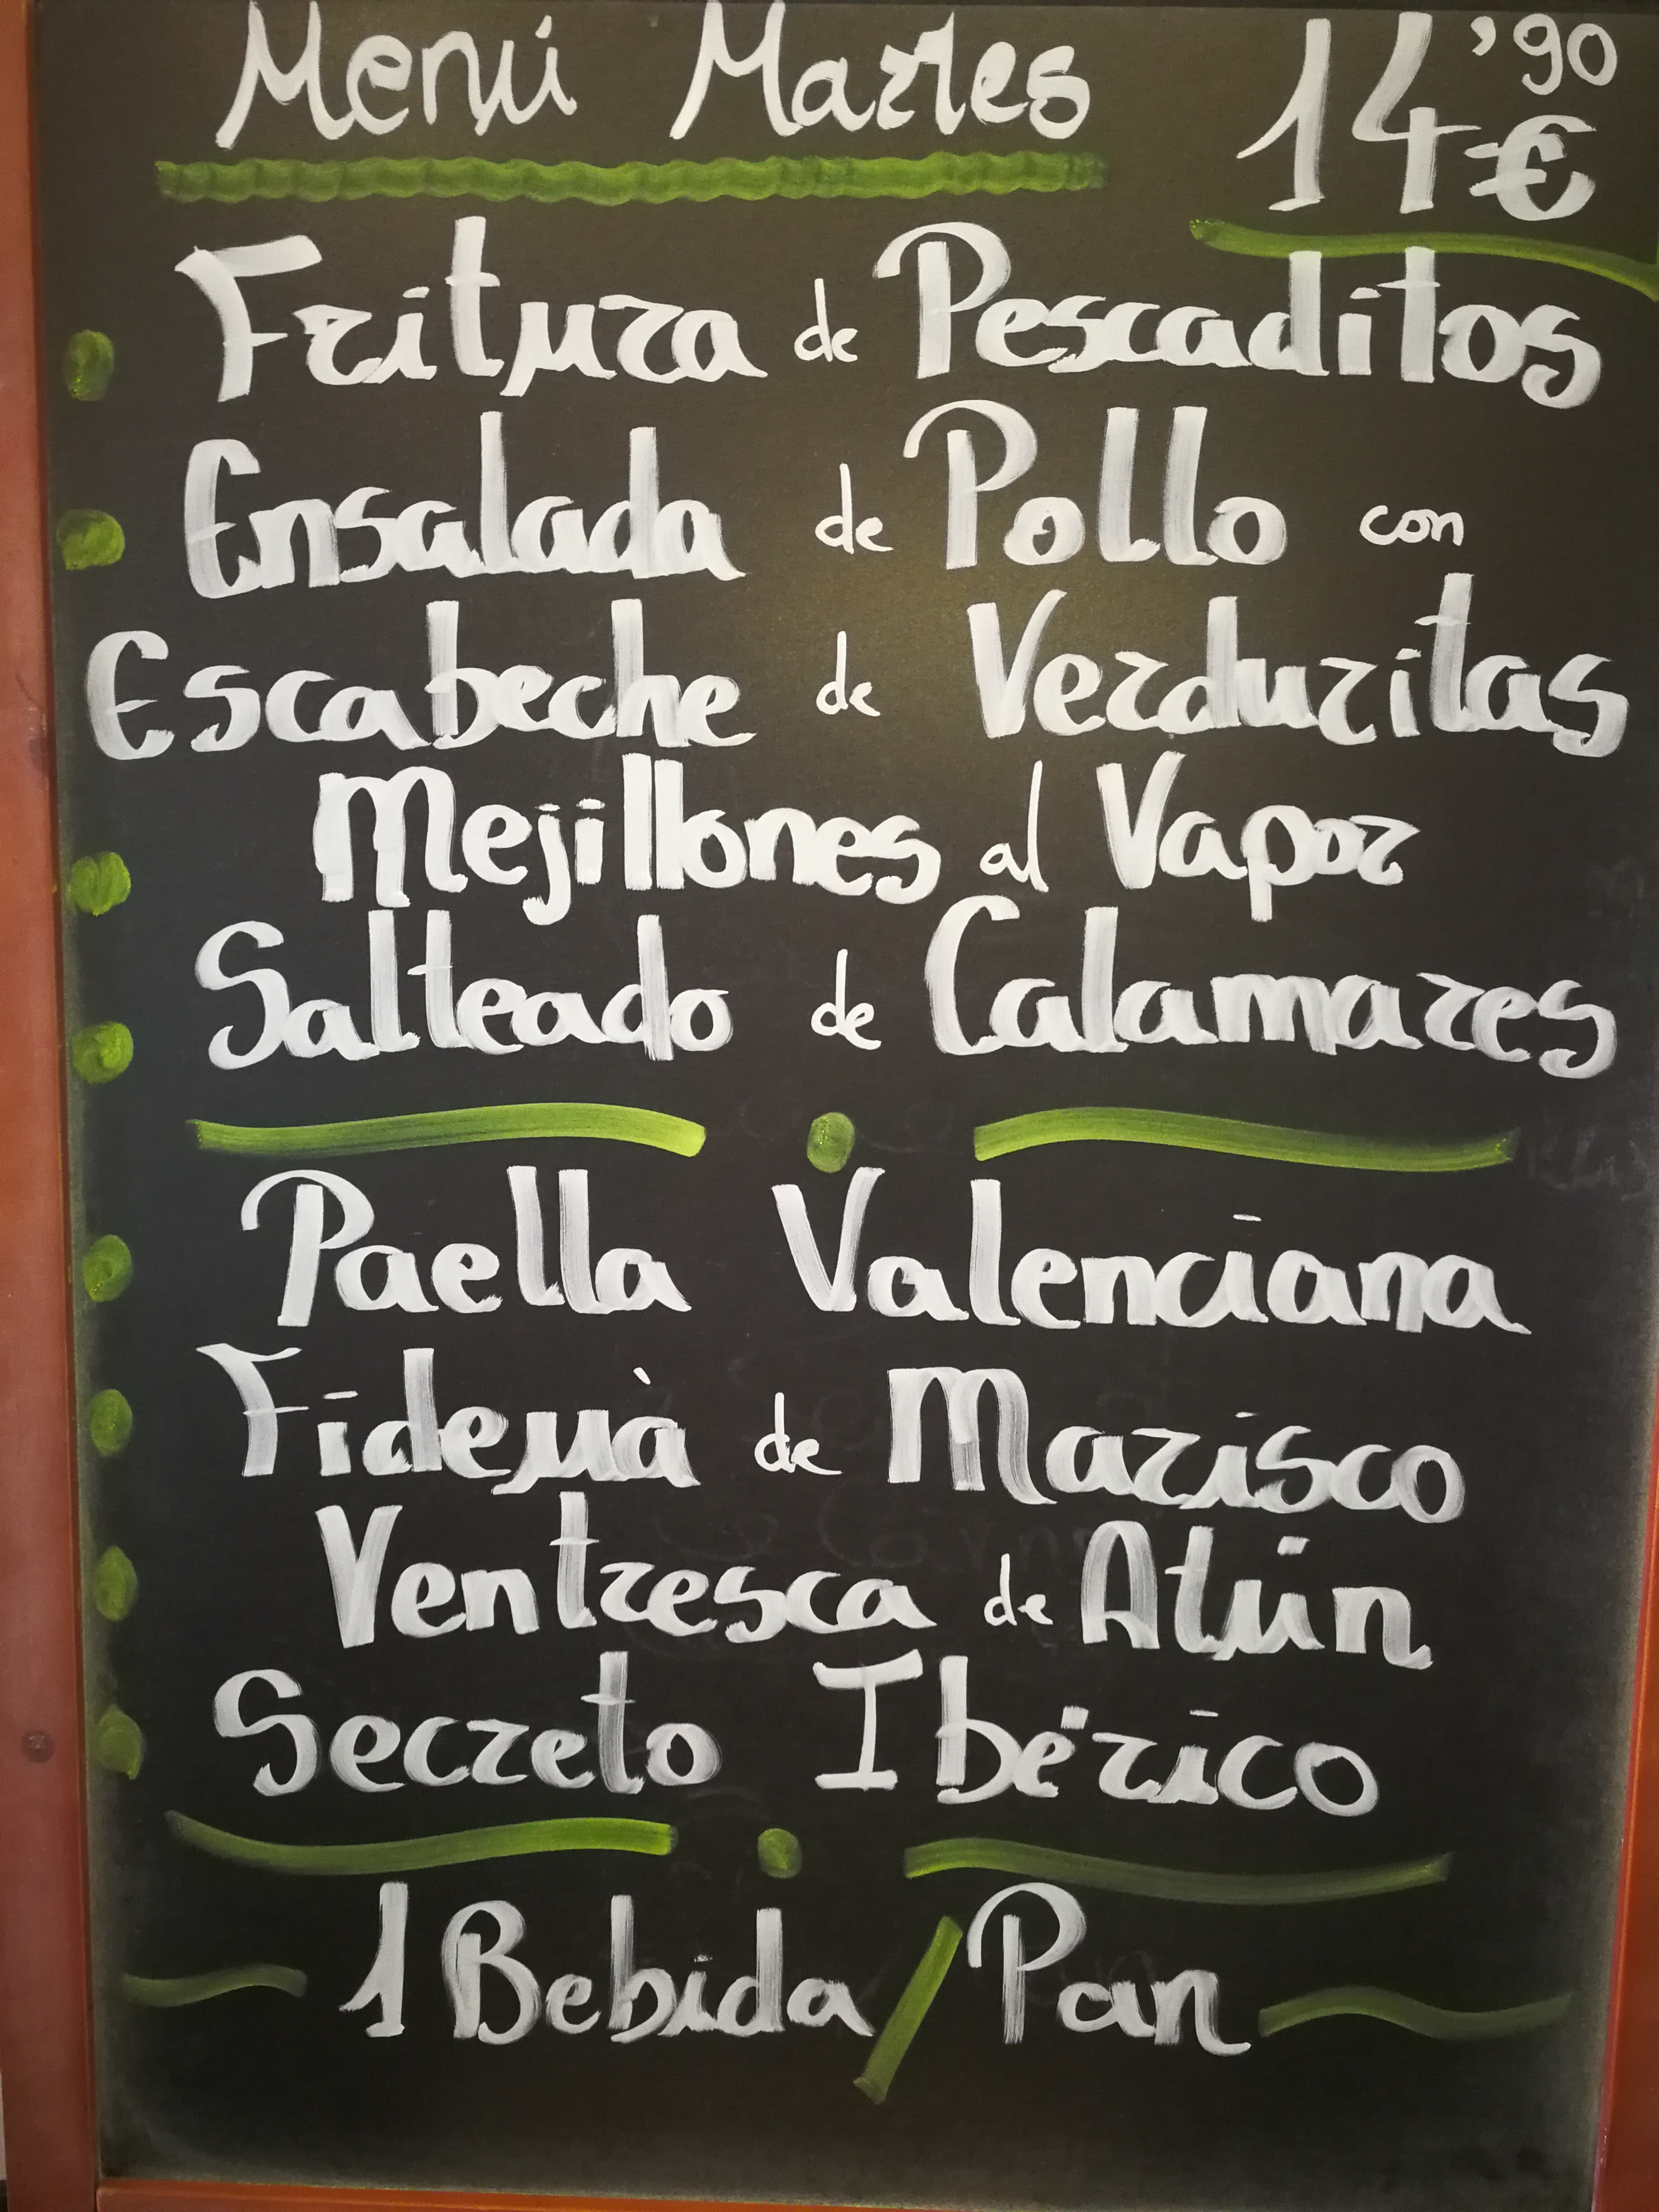 Menú Martes 14'90€
Fritura de Pescaditos
Ensalada de Pollo con
Escabeche de Verduritas
Mejillones al Vapor
Salteado de Calamares
Paella Valenciana
Fideuà de Marisco
Ventresca de Atún
Secreto Ibérico
1 Bebida / Pan